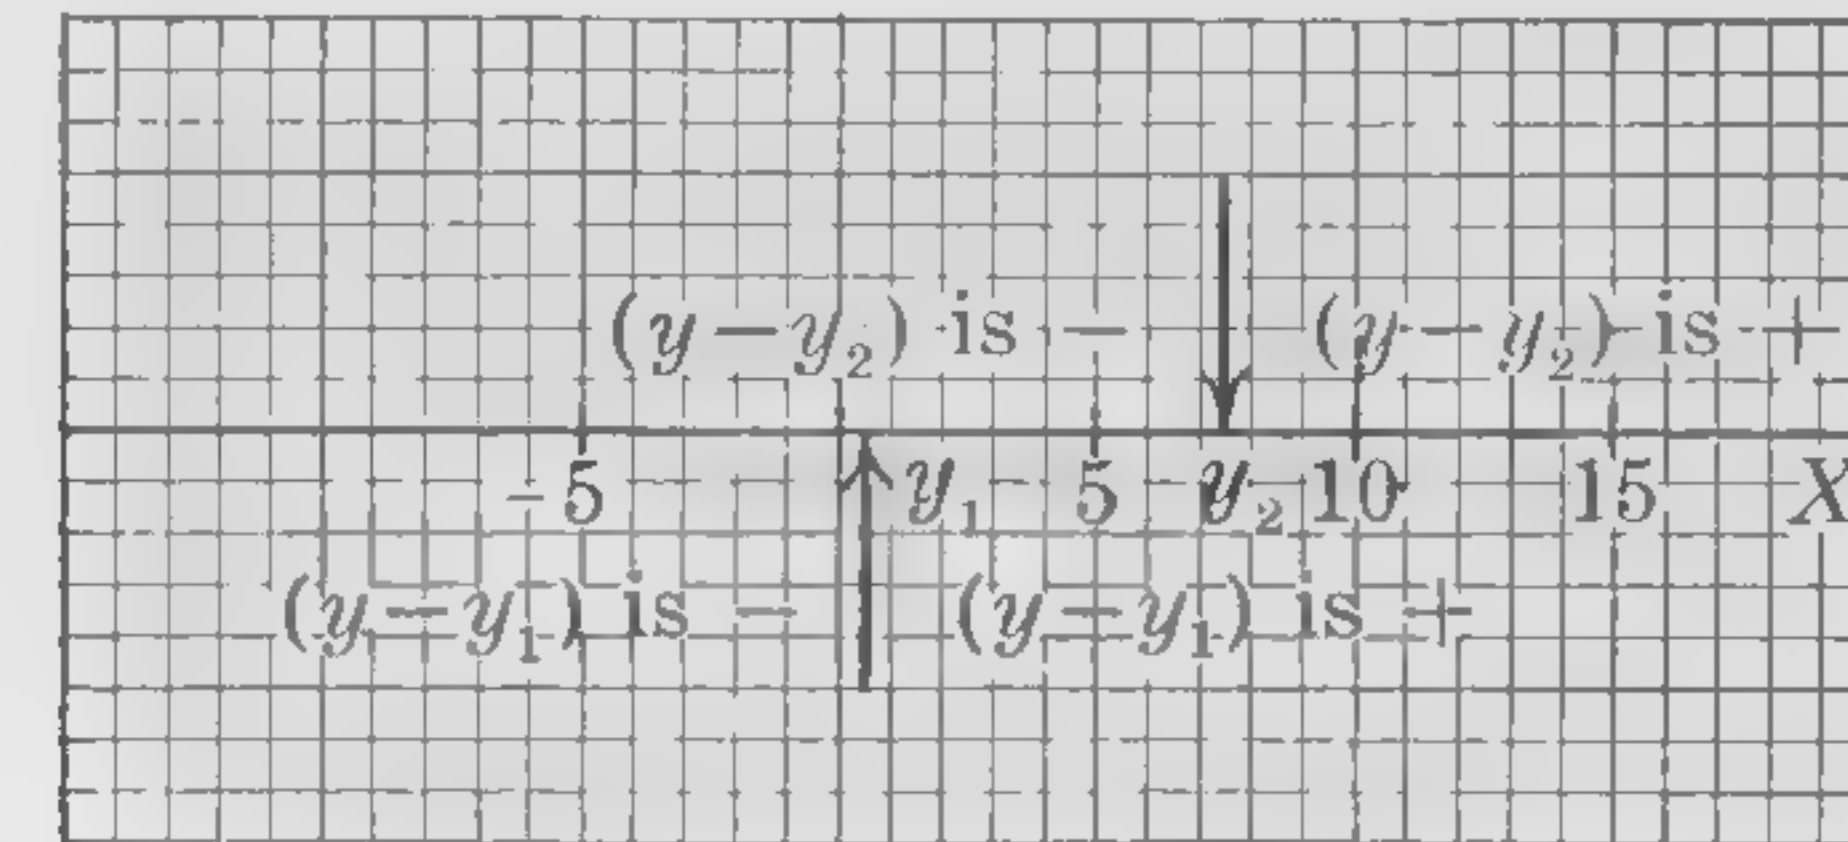 (y − y₂) is − (y − y₂) is +
− 5 y₁ 5 y₂ 10 15 X
(y − y₁) is − (y − y₁) is +